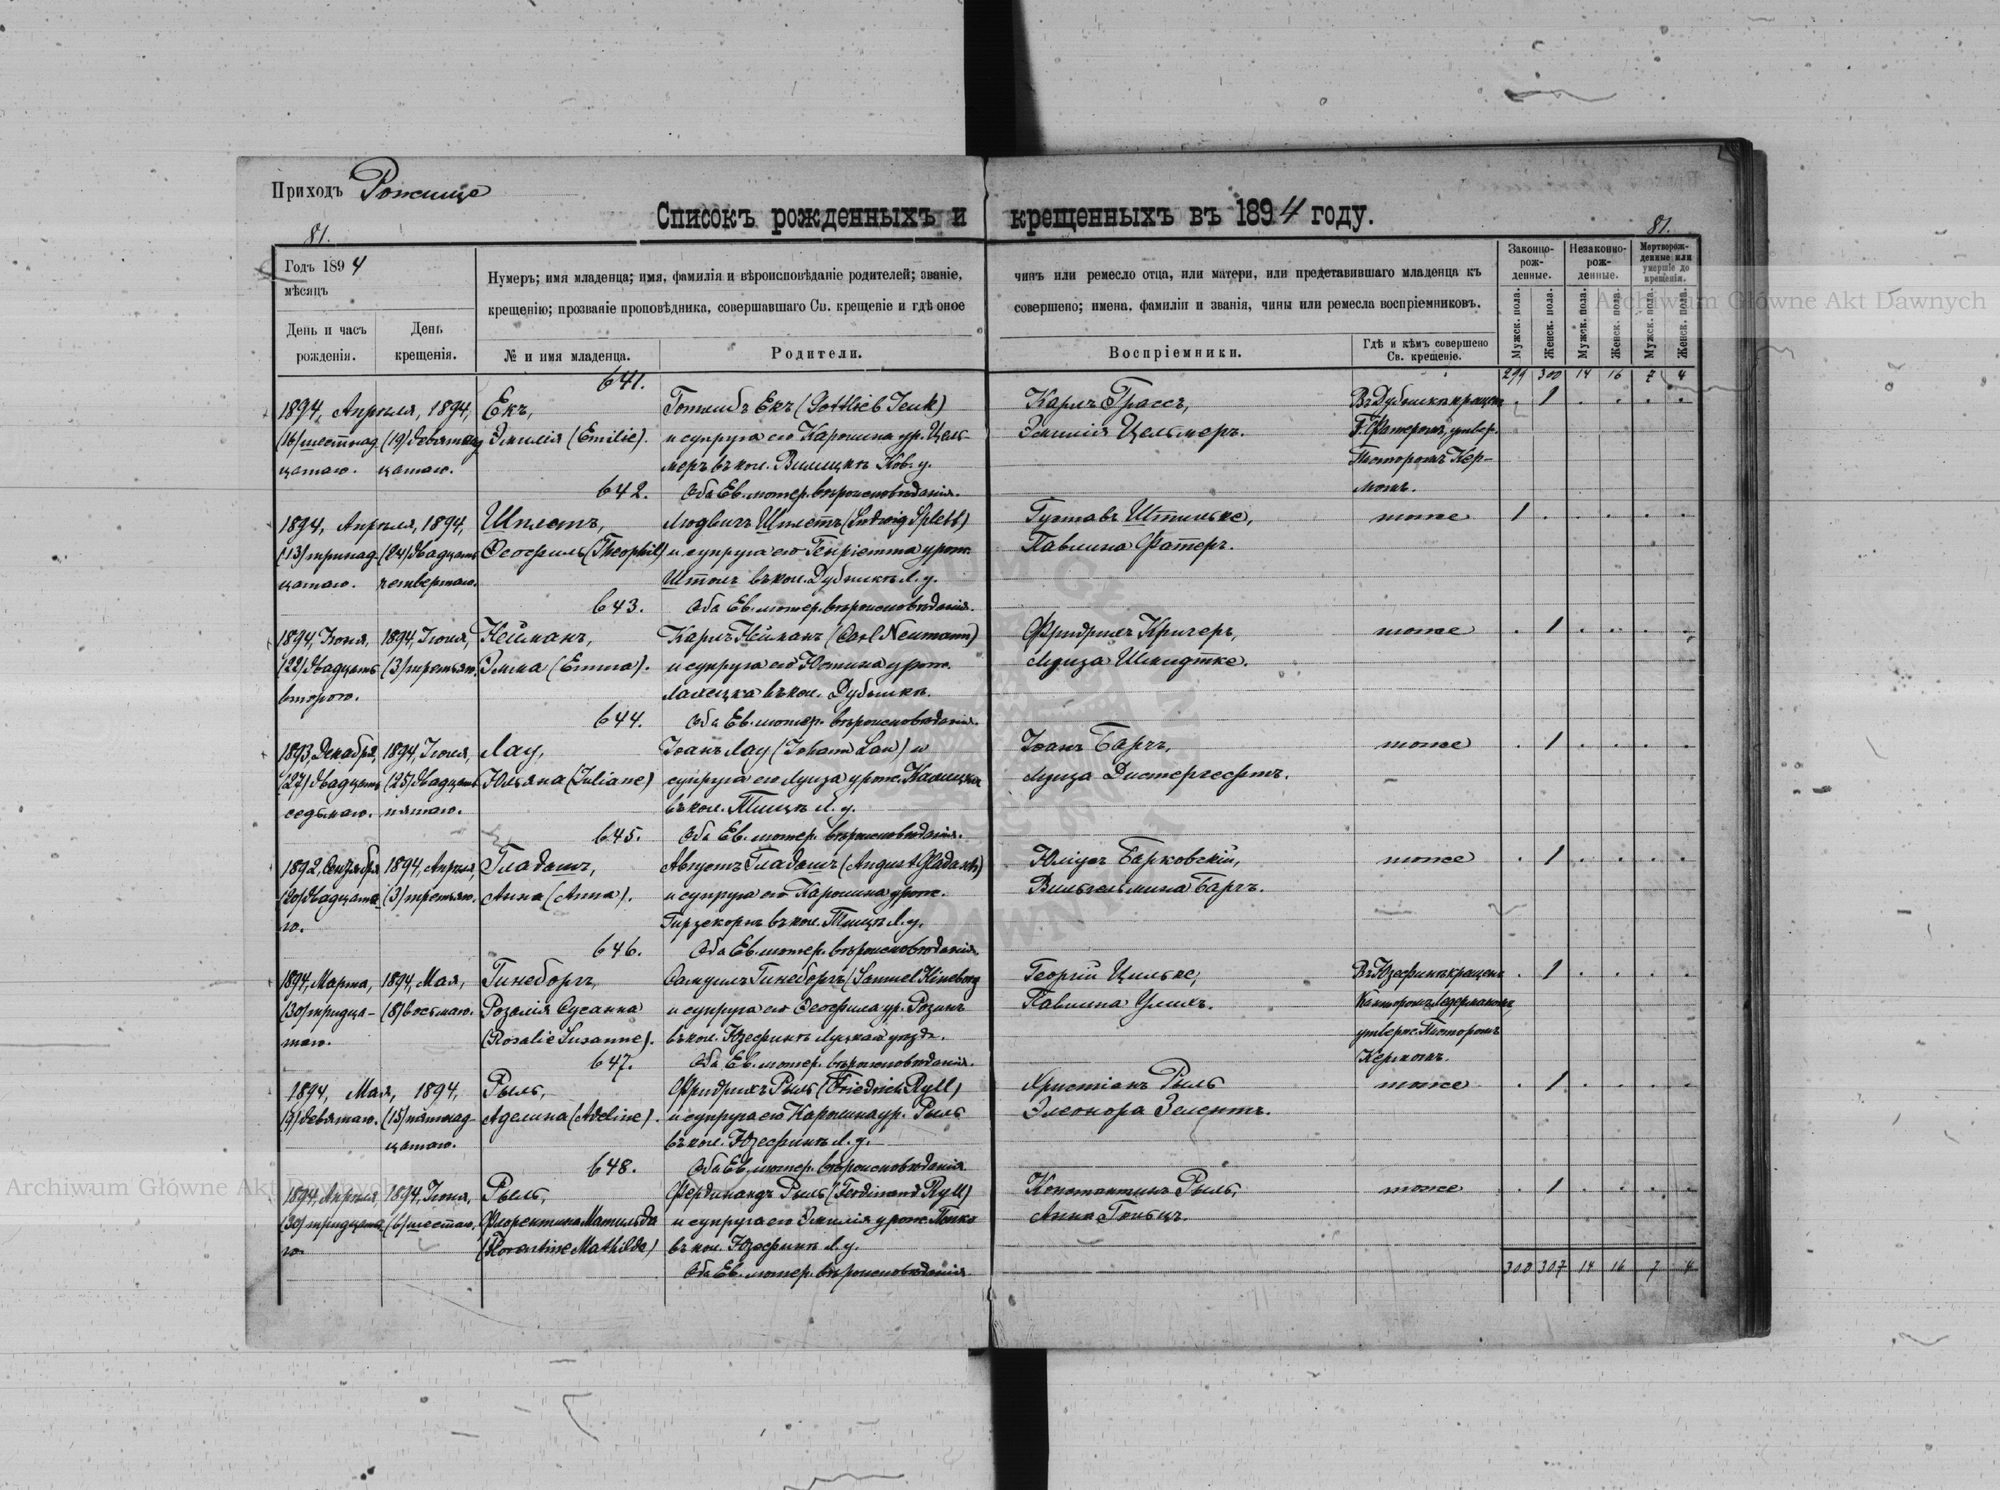 Приходъ Рожище
Списокъ рожденныхъ и крещенныхъ въ 1894 году.
81.
81.
Годъ 1894
мѣсяцъ
День и часъ
рожденія.
День
крещенія.
Нумеръ; имя младенца; имя, фамилія и вѣроисповѣданіе родителей; званіе,
крещенію; прозваніе проповѣдника, совершавшаго Св. крещеніе и гдѣ оное
№ и имя младенца.
Родители.
чинъ или ремесло отца, или матери, или представившаго младенца къ
совершено; имена, фамиліи и званія, чины или ремесла воспріемниковъ.
Воспріемники.
Гдѣ и кѣмъ совершено
Св. крещеніе.
Законно-
рож-
денные.
Незаконно-
рож-
денные.
Мертворож-
денные или
умершіе до
крещенія.
Мужск. пола.
Женск. пола.
Мужск. пола.
Женск. пола.
Мужск. пола.
Женск. пола.
299 300 14 16 7 4
641.
1894, Апрѣля, 1894,
(16) шестнад (19) девятнад
цатаго. цатаго.
Екъ,
Эмилія (Emilie).
Готлибъ Екъ (Gottlieb Jeuk)
и супруга его Каролина ур. Цель-
меръ въ кол.
Оба Ев. лютер. вѣроисповѣданія.
Карлъ Грассъ,
Эмилія Цельмеръ.
642.
1894, Апрѣля, 1894,
(13) тринад (24) двадцать
цатаго. четвертаго.
Шплетъ,
Ѳеофиль (Theophil)
Людвигъ Шплетъ (Ludwig Splett)
и супруга его Генріетта урож.
Штольъ въ кол. Дубищѣ Л. у.
Оба Ев. лютер. вѣроисповѣданія.
Густавъ
Павлина Фатеръ.
тоже
1
643.
1894, Іюня, 1894, Іюля,
(22) двадцать (3) третьяго.
второго.
Нейманъ,
Эмма (Emma).
Карлъ Нейманъ (Carl Neumann)
и супруга его Юстина урож.
въ кол. Дубищѣ.
Оба Ев. лютер. вѣроисповѣданія.
Фридрихъ Кригеръ,
Луиза Шмидтке.
тоже
1
644.
1893, Декабря, 1894, Іюля,
(27) двадцать (25) двадцать
седьмаго. пятаго.
Лау,
Юльяна (Juliane)
Іоанъ Лау (Johann Lau) и
супруга его Луиза урож.
въ кол. Л. у.
Оба Ев. лютер. вѣроисповѣданія.
Іоанъ Барчъ,
Луиза Дистергефтъ.
тоже
1
645.
1892, Сентября 1894, Апрѣля,
(20) двадцата (3) третьяго.
го.
Гладашъ,
Анна (Anna).
Августъ Гладашъ (August Gladasch)
и супруга его Каролина урож.
Гирзекорнъ въ кол. Л. у.
Оба Ев. лютер. вѣроисповѣданія.
Юліусъ Барковскій,
Вильгельмина Барчъ.
тоже
1
646.
1894, Марта, 1894, Мая,
(30) тридца- (8) восьмаго.
таго.
Гинеборгъ,
Розалія Сусанна
(Rosalie Susanne).
Самуилъ Гинеборгъ (Samuel Hineborg
и супруга его Ѳеофила ур. Розинъ
въ кол. Юзефинѣ Луцкаго уѣзда.
Оба Ев. лютер. вѣроисповѣданія.
Георгій Цильке,
Павлина Улихъ.
Въ Юзефинѣ крещенъ
1
647.
1894, Мая, 1894,
(9) девятаго. (15) пятнад-
цатаго.
Рыль,
Аделина (Adeline).
Фридрихъ Рыль (Friedrich Ryll)
и супруга его Каролина ур. Рыль
въ кол. Юзефинѣ Л. у.
Оба Ев. лютер. вѣроисповѣданія.
Христіанъ Рыль
Элеонора Зелентъ.
тоже
1
648.
1894, Апрѣля, 1894, Іюня,
(30) тридцата (6) шестаго.
го.
Рыль,
Флорентина Матильда
(Florentine Mathilde)
Фердинандъ Рыль (Ferdinand Ryll)
и супруга его Эмилія урож.
въ кол. Юзефинѣ Л. у.
Оба Ев. лютер. вѣроисповѣданія.
Константинъ Рыль,
Анна
тоже
1
300 307 14 16 7 4
Archiwum Główne Akt Dawnych
Archiwum Główne Akt Dawnych